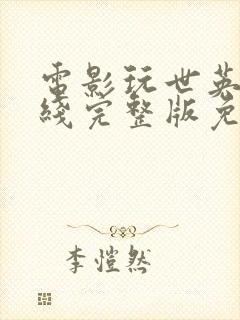 電影玩世英
綫完整版免
李愷然